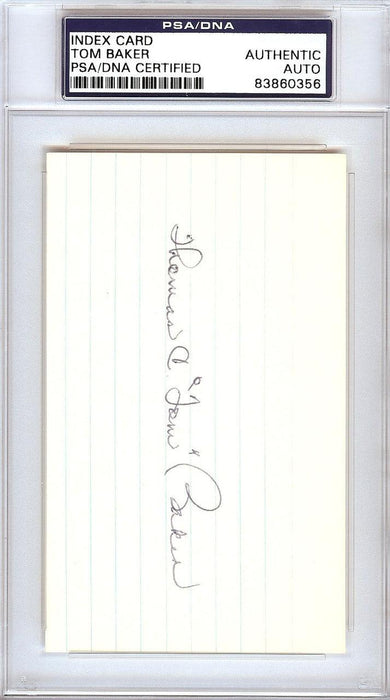 PSA/DNA
INDEX CARD
TOM BAKER
PSA/DNA CERTIFIED
AUTHENTIC
AUTO
83860356
Thomas C. "Tom" Baker